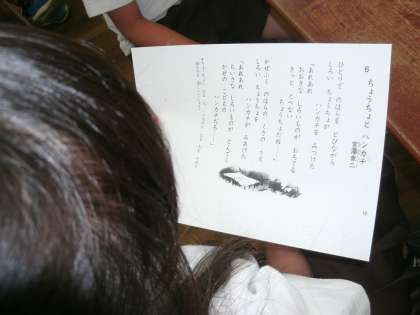 5 ちょうちょと ハンカチ
宮澤章二
ひとりで のはらを とびながら
しろい ちょうちょが
ハンカチを みつけた
「あれあれ
おおきな しろいものが おちてる
きっと とべない
ちょうちょだね」
かぜふく のはらの くさの うえ
しろい ちょうちょを
ハンカチが みあげた
「あれあれ
ちいさな しろいものが とんでく
かぜの こどもの
ハンカチだろ」